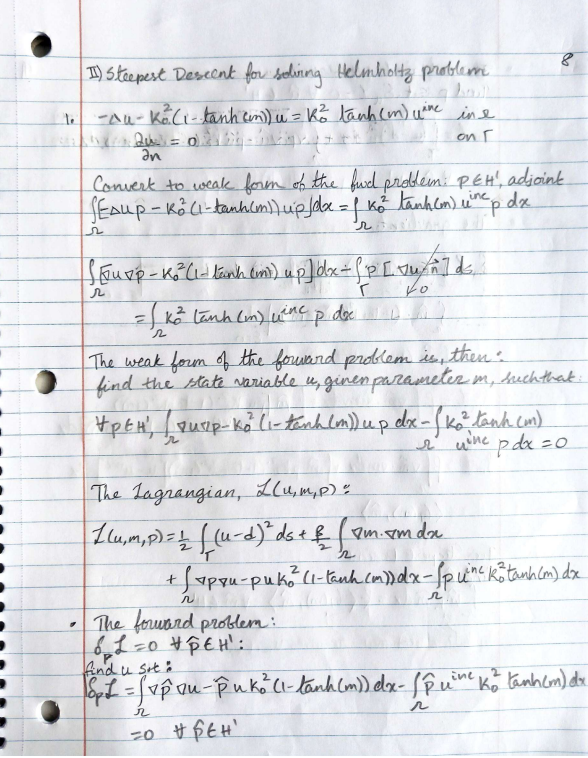 8
II) Steepest Descent for solving Helmholtz problem
1. -Δu - k₀²(1-tanh(m))u = k₀² tanh(m) uⁱⁿᶜ in Ω
∂u/∂n = 0 on Γ
Convert to weak form of the fwd problem: p∈H¹, adjoint
∫_Ω [-Δu p - k₀²(1-tanh(m)) u p] dx = ∫_Ω k₀² tanh(m) uⁱⁿᶜ p dx
∫_Ω [∇u∇p - k₀²(1-tanh(m)) u p] dx - ∫_Γ p [∇u·n⃗] ds → 0
= ∫_Ω k₀² tanh(m) uⁱⁿᶜ p dx
The weak form of the forward problem is, then:
find the state variable u, given parameter m, such that:
∀p∈H¹, ∫_Ω ∇u∇p - k₀²(1-tanh(m)) u p dx - ∫_Ω k₀² tanh(m)
uⁱⁿᶜ p dx = 0
The Lagrangian, ℒ(u,m,p):
ℒ(u,m,p) = 1/2 ∫_Γ (u-d)² ds + β/2 ∫_Ω ∇m·∇m dx
+ ∫_Ω ∇p∇u - p u k₀²(1-tanh(m)) dx - ∫_Ω p uⁱⁿᶜ k₀² tanh(m) dx
• The forward problem:
δ_p ℒ = 0 ∀ p̂∈H¹:
find u s.t:
δ_p ℒ = ∫_Ω ∇p̂ ∇u - p̂ u k₀²(1-tanh(m)) dx - ∫_Ω p̂ uⁱⁿᶜ k₀² tanh(m) dx
= 0 ∀ p̂∈H¹